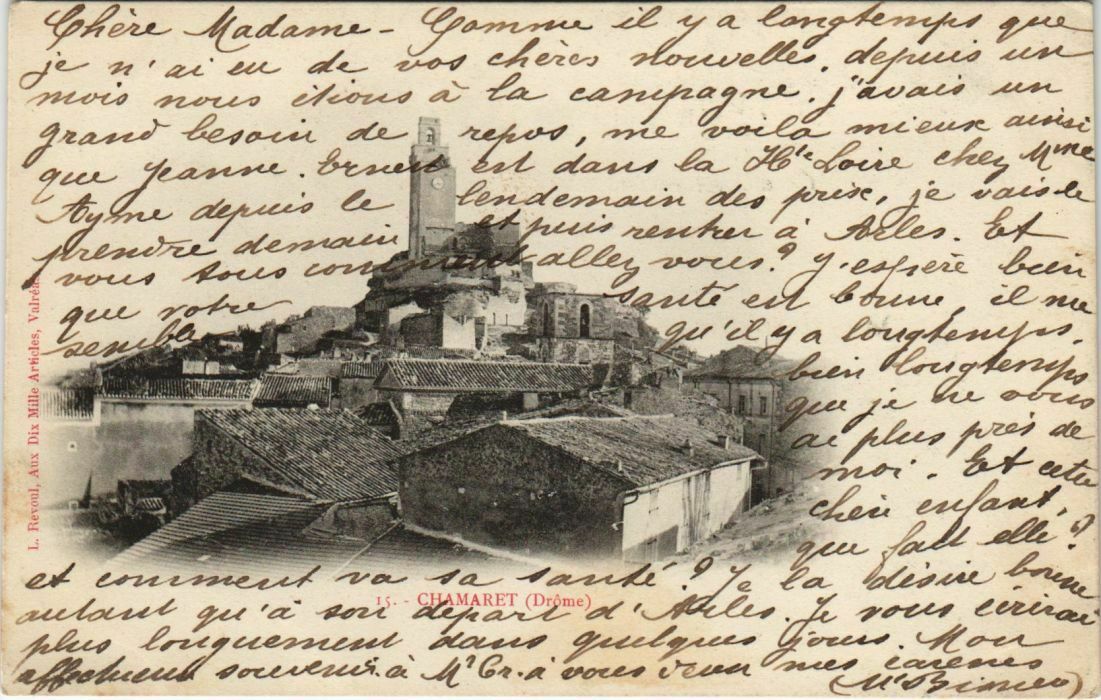 Chère Madame - Comme il y a longtemps que
je n'ai eu de vos chères nouvelles, depuis un
mois nous étions à la campagne, j'avais un
grand besoin de repos, me voilà mieux ainsi
que Jeanne. Ernest est dans la Hte Loire chez Mme
Ayme depuis le lendemain des prix, je vais le
prendre demain et puis rentrer à Arles. Et
vous tous comment allez vous? J'espère bien
que votre santé est bonne, il me
semble qu'il y a longtemps,
bien longtemps
que je ne vous
ai plus près de
moi. Et cette
chère enfant,
que fait elle?
et comment va sa santé? Je la désire bonne
autant qu'à son départ d'Arles. Je vous écrirai
plus longuement dans quelques jours. Mon
affectueux souvenir à Mr Cr. à vous deux mes caresses
15. - CHAMARET (Drôme)
L. Revoul, Aux Dix Mille Articles, Valréas